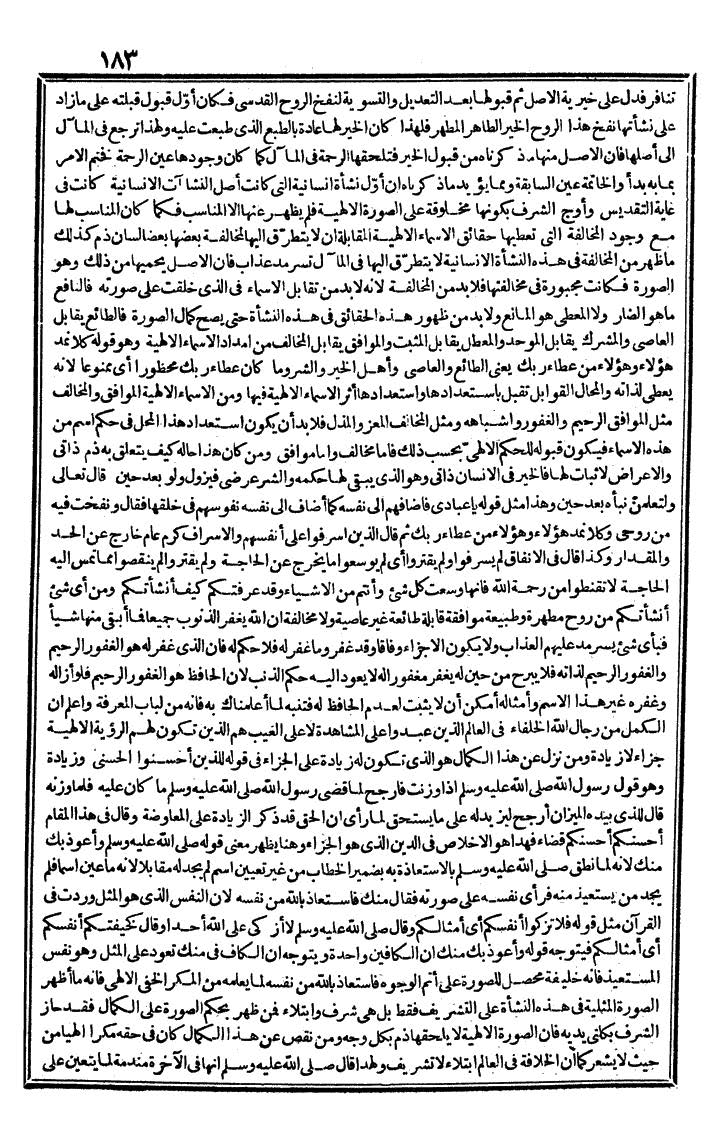 ١٨٣
تنافر فدل على خيرية الاصل ثم قبولها بعد التعديل والتسوية لنفخ الروح القدسى فكان أوّل قبول قبلته على مازاد
على نشأتها نفخ هذا الروح الخير الطاهر المطهر فلهذا كان الخير لها عادة بالطبع الذى طبعت عليه ولهذا ترجع فى المآل
الى أصلها فان الاصل منها ما ذكرناه من قبول الخير فتلحقها الرحمة فى المآل كما كان وجودها عين الرحمة فختم الامر
بما به بدأ والخاتمة عين السابقة ومما يؤيد ما ذكرناه ان أوّل نشأة انسانية التى كانت أصل النشآت الانسانية كانت فى
غاية التقديس وأوج الشرف بكونها مخلوقة على الصورة الالهية فلم يظهر عنها الا المناسب فكما كان المناسب لها
مع وجود المخالفة التى تعطيها حقائق الاسماء الالهية المقابلة ان لا يتطرّق اليها لمخالفة بعضها بعضا لسان ذم كذلك
ماظهر من المخالفة فى هذه النشأة الانسانية لا يتطرّق اليها فى المآل تسرمد عذاب فان الاصل يحميها من ذلك وهو
الصورة فكانت مجبورة فى مخالفتها فلابد من المخالفة لانه لابد من تقابل الاسماء فى الذى خلقت على صورته فالنافع
ماهو الضار ولا المعطى هو المانع ولابد من ظهور هذه الحقائق فى هذه النشأة حتى يصح كمال الصورة فالطائع يقابل
العاصى والمشرك يقابل الموحد والمعطل يقابل المثبت والموافق يقابل المخالف من امداد الاسماء الالهية وهو قوله كلا نمد
هؤلاء وهؤلاء من عطاء ربك يعنى الطائع والعاصى وأهل الخير والشر وما كان عطاء ربك محظورا أى ممنوعا لانه
يعطى لذاته والمحال القوابل تقبل باستعدادها واستعدادها أثر الاسماء الالهية فيها ومن الاسماء الالهية الموافق والمخالف
مثل الموافق الرحيم والغفور واشباهه ومثل المخالف المعز والمذل فلابد أن يكون استعداد هذا المحل فى حكم اسم من
هذه الاسماء فيكون قبوله للحكم الالهىّ بحسب ذلك فاما مخالف واما موافق ومن كان هذا حاله كيف يتعلق به ذم ذاتى
والاعراض لا ثبات لها فالخير فى الانسان ذاتى وهو الذى يبقى لها حكمه والشر عرضى فيزول ولو بعد حين قال تعالى
ولتعلمنّ نبأه بعد حين وهذا مثل قوله ياعبادى فاضافهم الى نفسه كما أضاف الى نفسه نفوسهم فى خلقها فقال ونفخت فيه
من روحى وكلا نمد هؤلاء وهؤلاء من عطاء ربك ثم قال الذين اسرفوا على أنفسهم والاسراف كرم عام خارج عن الحد
والمقدار وكذا قال فى الانفاق لم يسرفوا ولم يقتروا أى لم يوسعوا ما يخرج عن الحاجة ولم يقتروا لم ينقصوا مما تمس اليه
الحاجة لا تقنطوا من رحمة الله فانها وسعت كل شئ وأنتم من الاشياء وقد عرفتكم كيف أنشأتكم ومن أى شئ
أنشأتكم من روح مطهرة وطبيعة موافقة قابلة طائعة غير عاصية ولا مخالفة ان الله يغفر الذنوب جميعا فما أبقى منها شيأ
فبأى شئ يسرمد عليهم العذاب ولا يكون الاجزاء وفاقا وقد غفر وما غفر له فلا حكم له فان الذى غفر له هو الغفور الرحيم
والغفور الرحيم لذاته فلا يبرح من حين له يغفر مغفور اله لا يعود اليه حكم الذنب لان الحافظ هو الغفور الرحيم فلو أزاله
وغفره غير هذا الاسم وأمثاله أمكن أن لا يثبت لعدم الحافظ له فتنبه لما أعلمناك به فانه من لباب المعرفة واعلم ان
الكمل من رجال الله الخلفاء فى العالم الذين عبدوا على المشاهدة لا على الغيب هم الذين تكون لهم الرؤية الالهية
جزاء لازيادة ومن نزل عن هذا الكمال هو الذى تكون له زيادة على الجزاء فى قوله للذين أحسنوا الحسنى وزيادة
وهو قول رسول الله صلى الله عليه وسلم اذا وزنت فارجح لما قضى رسول الله صلى الله عليه وسلم ما كان عليه فلما وزنه
قال للذى بيده الميزان أرجح ليزيد له على ما يستحق لما رأى ان الحق قد ذكر الزيادة على المعاوضة وقال فى هذا المقام
أحسنكم أحسنكم قضاء فهذا هو الاخلاص فى الدين الذى هو الجزاء وهنا يظهر معنى قوله صلى الله عليه وسلم وأعوذ بك
منك لانه لما نطق صلى الله عليه وسلم بالاستعاذة به بضمير الخطاب من غير تعيين اسم لم يجد له مقابلا لانه ما عين اسما فلم
يجد من يستعيذ منه فرأى نفسه على صورته فقال منك فاستعاذ بالله من نفسه لان النفس الذى هو المثل وردت فى
القرآن مثل قوله فلا تزكوا أنفسكم أى أمثالكم وقال صلى الله عليه وسلم لا أزكى على الله أحدا وقال كخيفتكم أنفسكم
أى أمثالكم فيتوجه قوله وأعوذ بك منك ان الكافين واحدة ويتوجه ان الكاف فى منك تعود على المثل وهو نفس
المستعيذ فانه خليفة محصل للصورة على أتم الوجوه فاستعاذ بالله من نفسه لما يعلمه من المكر الخفى الالهى فانه ما أظهر
الصورة المثلية فى هذه النشأة على التشريف فقط بل هى شرف وابتلاء فمن ظهر بحكم الصورة على الكمال فقد حاز
الشرف بكلتى يديه فان الصورة الالهية لا يلحقها ذم بكل وجه ومن نقص عن هذا الكمال كان فى حقه مكرا الهيا من
حيث لا يشعر كما أنّ الخلافة فى العالم ابتلاء لا تشريف ولهذا قال صلى الله عليه وسلم انها فى الآخرة مندمة لما يتعين على